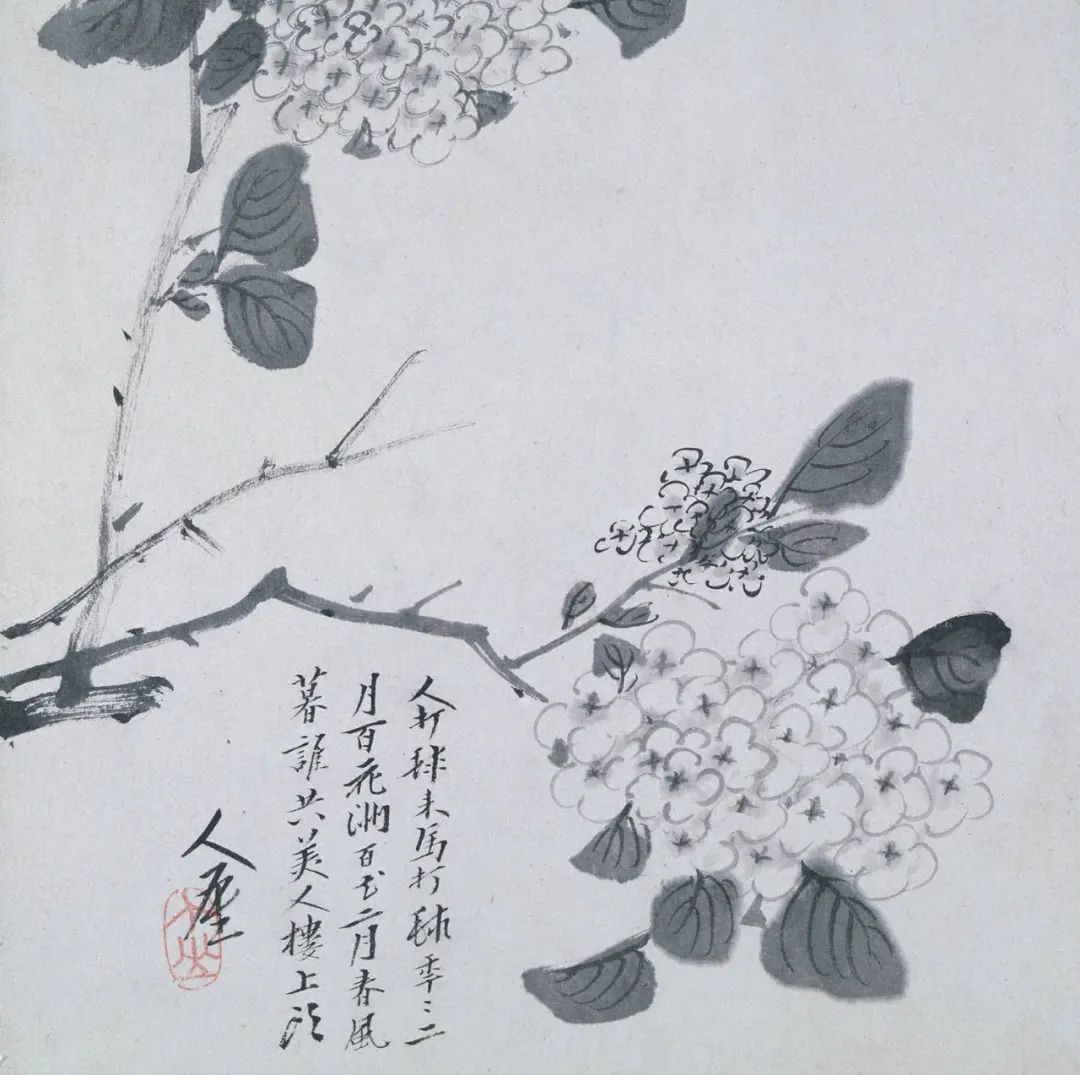 人打毬来馬打毬年〻二
月百花洲百花二月春風
暮誰共美人樓上頭
人屋